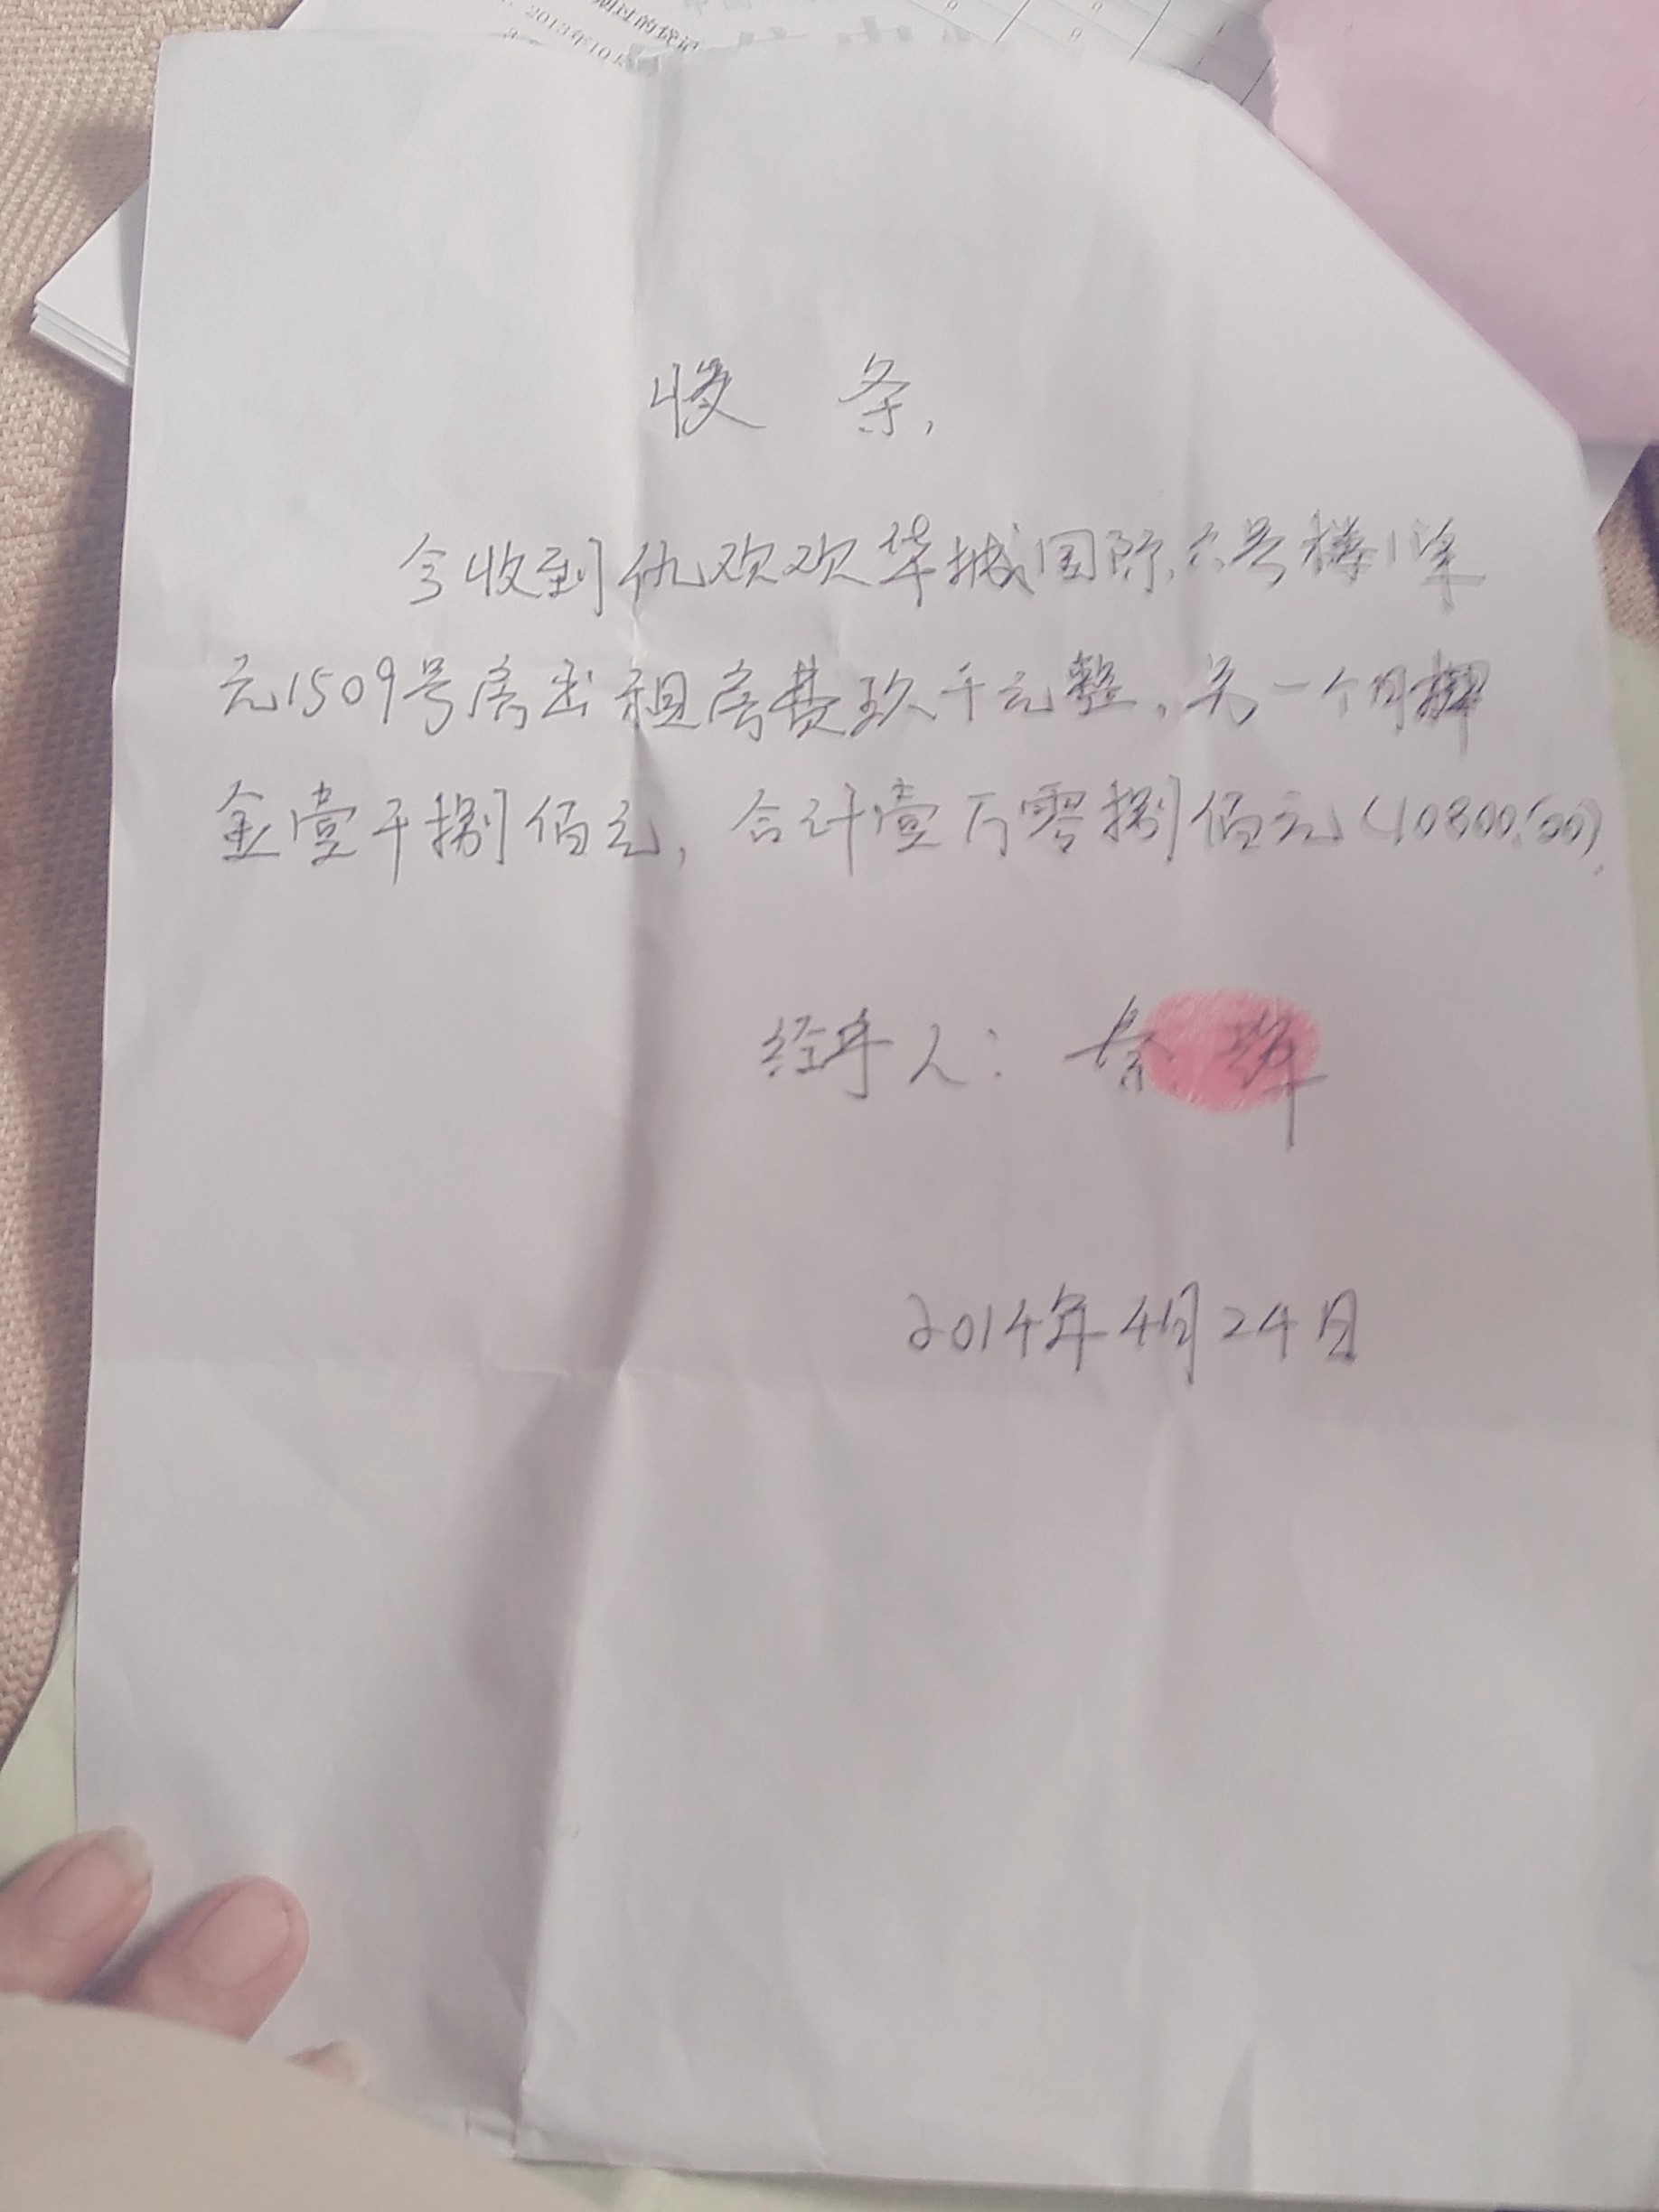 2013年10月
收 条,
今收到仇欢欢华城国际,六号楼1单
元1509号房出租房费玖千元整,另一个月押
金壹千捌佰元,合计壹万零捌佰元(10800.00).
经手人: 秦 辉
2014年4月24日